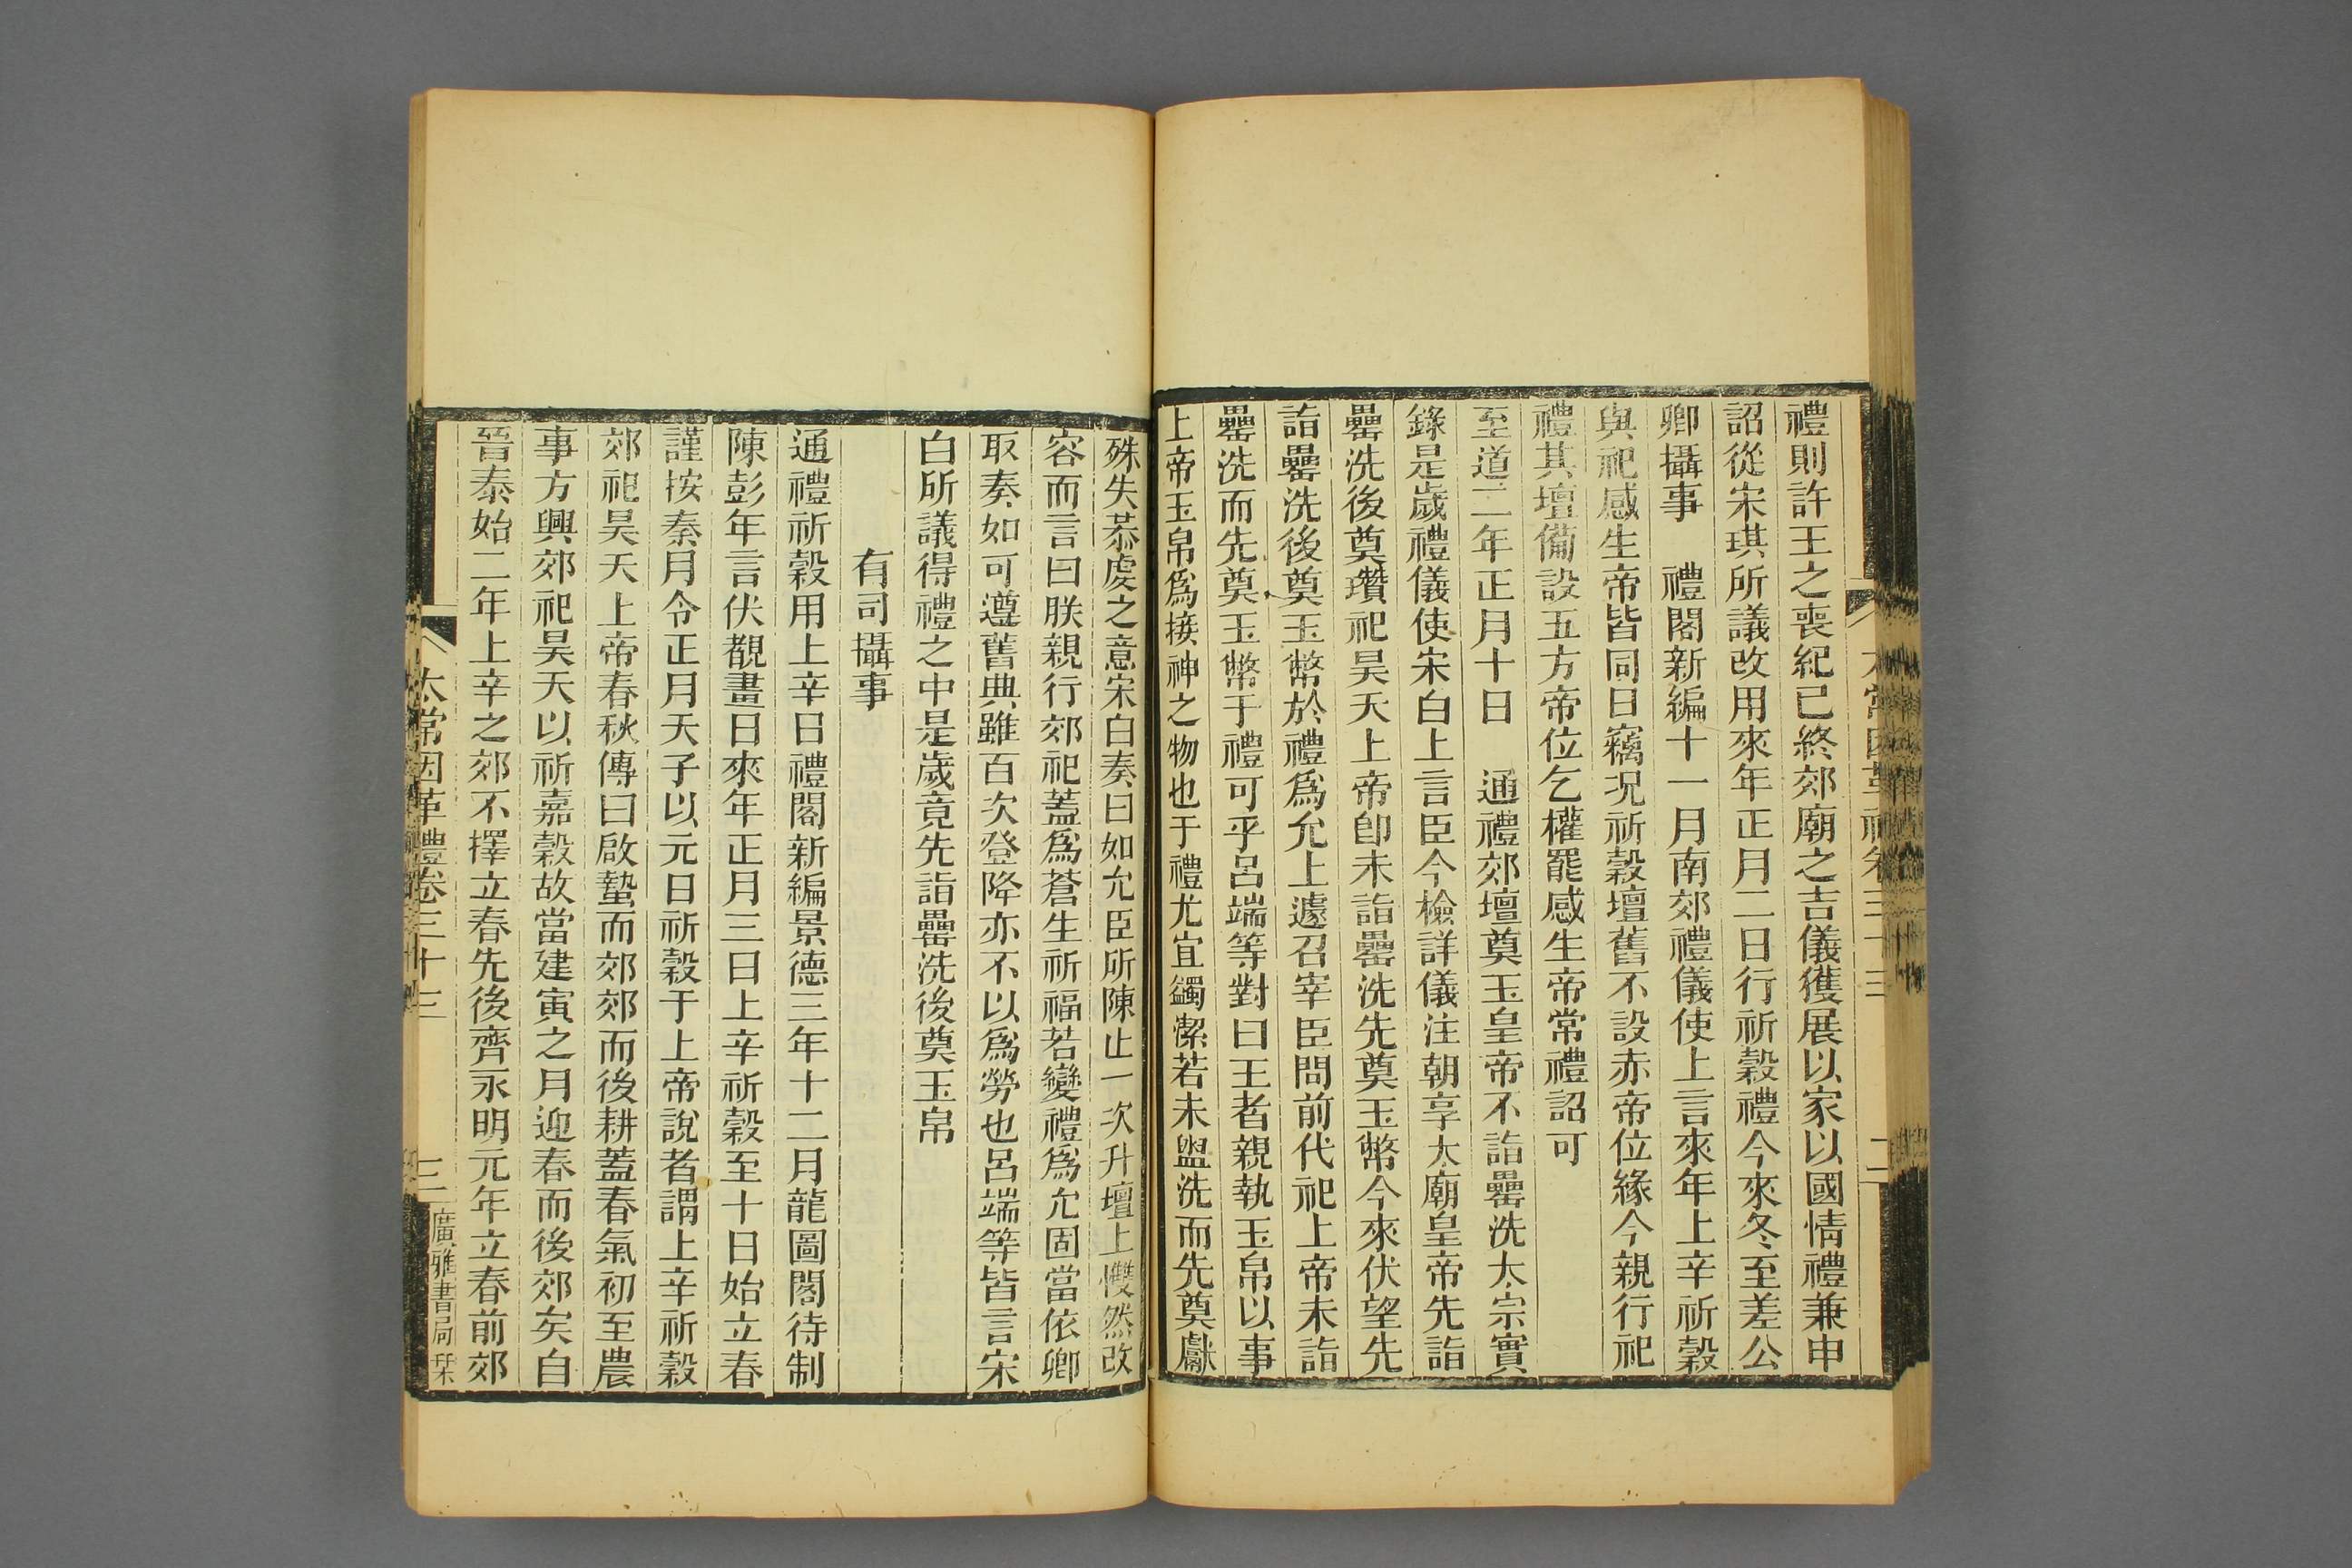 禮則許王之喪紀已終郊廟之吉儀獲展以家以國情禮兼申
詔從宋琪所議改用來年正月二日行祈穀禮今來冬至差公
卿攝事　禮閣新編十一月南郊禮儀使上言來年上辛祈穀
與祀感生帝皆同日竊況祈穀壇舊不設赤帝位緣今親行祀
禮其壇備設五方帝位乞權罷感生帝常禮詔可
至道二年正月十日　通禮郊壇奠玉皇帝不詣罍洗太宗實
錄是歲禮儀使宋白上言臣今檢詳儀注朝享太廟皇帝先詣
罍洗後奠瓚祀昊天上帝卽未詣罍洗先奠玉幣今來伏望先
詣罍洗後奠玉幣於禮爲允上遽召宰臣問前代祀上帝未詣
罍洗而先奠玉幣于禮可乎呂端等對曰王者親執玉帛以事
上帝玉帛爲接神之物也于禮尤宜蠲潔若未盥洗而先奠獻
殊失恭虔之意宋白奏曰如允臣所陳止一次升壇上戄然改
容而言曰朕親行郊祀蓋爲蒼生祈福若變禮爲允固當依卿
取奏如可遵舊典雖百次登降亦不以爲勞也呂端等皆言宋
白所議得禮之中是歲竟先詣罍洗後奠玉帛
有司攝事
通禮祈穀用上辛日禮閣新編景德三年十二月龍圖閣待制
陳彭年言伏覩畫日來年正月三日上辛祈穀至十日始立春
謹按秦月令正月天子以元日祈穀于上帝說者謂上辛祈穀
郊祀昊天上帝春秋傳曰啟蟄而郊郊而後耕蓋春氣初至農
事方興郊祀昊天以祈嘉穀故當建寅之月迎春而後郊矣自
晉泰始二年上辛之郊不擇立春先後齊永明元年立春前郊
太常因革禮卷三十三　三　廣雅書局栞